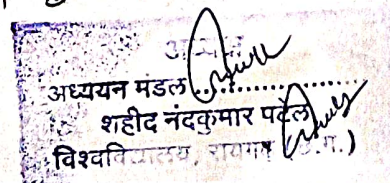 अध्ययन मंडल ..................
शहीद नंदकुमार पटेल
विश्वविद्यालय, रायगढ़ (छ.ग.)